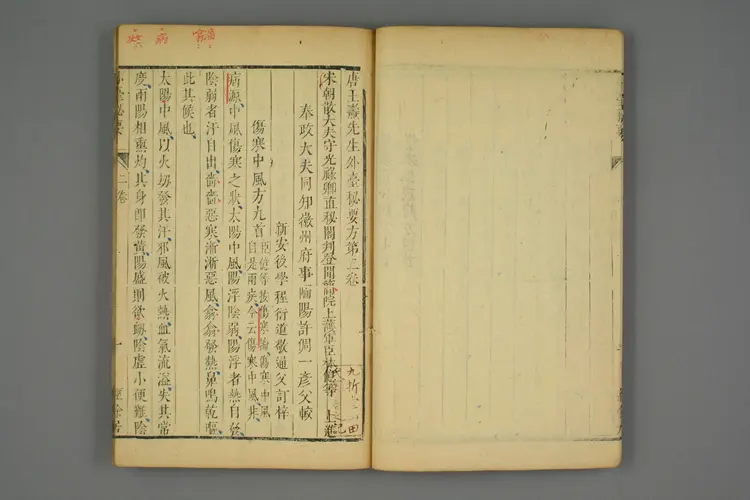 唐王燾先生外臺秘要方第二卷
宋朝散大夫守光祿卿直秘閣判登聞檢院上護軍臣林億等 上進
奉政大夫同知徽州府事 陽許 一彥父較
新安後學程衍道敬通父訂梓
傷寒中風方九首 臣億等按傷寒論傷寒中風自是兩疾今云傷寒中風非
病源中風傷寒之狀太陽中風陽浮陰弱陽浮者熱自發
陰弱者汗自出嗇嗇惡寒淅淅惡風翕翕發熱鼻鳴乾嘔
此其候也
太陽中風以火刧發其汗邪風被火熱血氣流溢失其常
度兩陽相熏灼其身即發黃陽盛則欲衄陰虛小便難陰
二卷
一
經餘居
病
九折
田
記